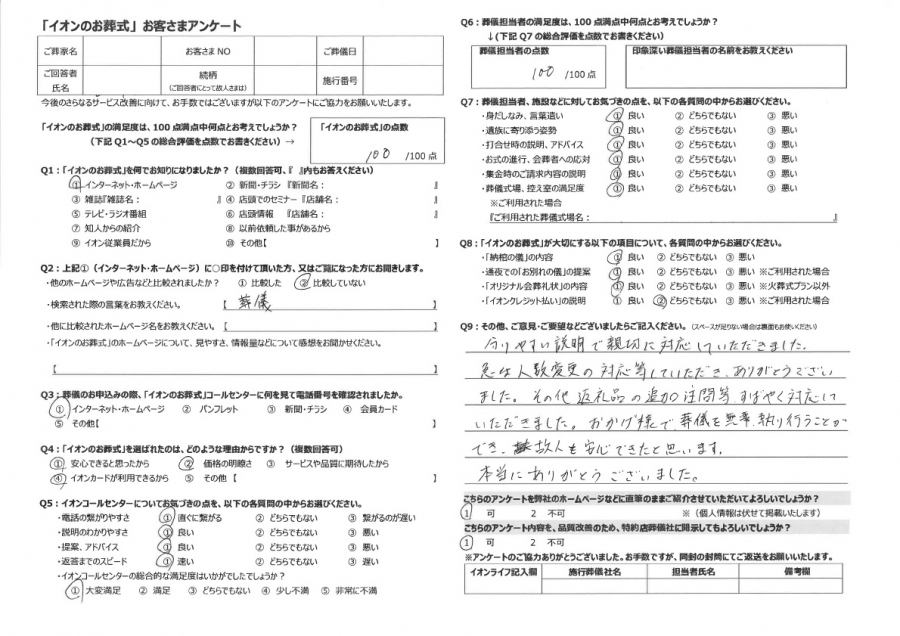 「イオンのお葬式」お客さまアンケート
ご葬家名
お客さまNO
ご葬儀日
ご回答者
氏名
続柄
(ご回答者にとって故人さまは)
施行番号
今後のさらなるサービス改善に向けて、お手数ではございますが以下のアンケートにご協力をお願いいたします。
「イオンのお葬式」の満足度は、100点満点中何点とお考えでしょうか?
(下記Q1～Q5の総合評価を点数でお書きください) →
「イオンのお葬式」の点数
100 /100点
Q1:「イオンのお葬式」を何でお知りになりましたか?(複数回答可、『 』内もお答えください)
① インターネット・ホームページ ② 新聞・チラシ『新聞名: 』
③ 雑誌『雑誌名: 』 ④ 店頭でのセミナー『店舗名: 』
⑤ テレビ・ラジオ番組 ⑥ 店頭情報 『店舗名: 』
⑦ 知人からの紹介 ⑧ 以前依頼した事があるから
⑨ イオン従業員だから ⑩ その他【 】
Q2:上記①(インターネット・ホームページ)に○印を付けて頂いた方、又はご覧になった方にお聞きします。
・他のホームページや広告などと比較されましたか? ① 比較した ② 比較していない
・検索された際の言葉をお教えください。 【 葬儀 】
・他に比較されたホームページ名をお教えください。【 】
・「イオンのお葬式」のホームページについて、見やすさ、情報量などについて感想をお聞かせください。
【 】
Q3:葬儀のお申込みの際、「イオンのお葬式」コールセンターに何を見て電話番号を確認されましたか。
① インターネット・ホームページ ② パンフレット ③ 新聞・チラシ ④ 会員カード
⑤ その他【 】
Q4:「イオンのお葬式」を選ばれたのは、どのような理由からですか?(複数回答可)
① 安心できると思ったから ② 価格の明瞭さ ③ サービスや品質に期待したから
④ イオンカードが利用できるから ⑤ その他 【 】
Q5:イオンコールセンターについてお気づきの点を、以下の各質問の中からお選びください。
・電話の繋がりやすさ ① 直ぐに繋がる ② どちらでもない ③ 繋がるのが遅い
・説明のわかりやすさ ① 良い ② どちらでもない ③ 悪い
・提案、アドバイス ① 良い ② どちらでもない ③ 悪い
・返答までのスピード ① 速い ② どちらでもない ③ 遅い
・イオンコールセンターの総合的な満足度はいかがでしたでしょうか?
① 大変満足 ② 満足 ③ どちらでもない ④ 少し不満 ⑤ 非常に不満
Q6:葬儀担当者の満足度は、100点満点中何点とお考えでしょうか?
↓(下記Q7の総合評価を点数でお書きください)
葬儀担当者の点数
100 /100点
印象深い葬儀担当者の名前をお教えください
Q7:葬儀担当者、施設などに対してお気づきの点を、以下の各質問の中からお選びください。
・身だしなみ、言葉遣い ① 良い ② どちらでもない ③ 悪い
・遺族に寄り添う姿勢 ① 良い ② どちらでもない ③ 悪い
・打合せ時の説明、アドバイス ① 良い ② どちらでもない ③ 悪い
・お式の進行、会葬者への応対 ① 良い ② どちらでもない ③ 悪い
・集金時のご請求内容の説明 ① 良い ② どちらでもない ③ 悪い
・葬儀式場、控え室の満足度 ① 良い ② どちらでもない ③ 悪い
※ご利用された場合
『ご利用された葬儀式場名: 』
Q8:「イオンのお葬式」が大切にする以下の項目について、各質問の中からお選びください。
・「納棺の儀」の内容 ① 良い ② どちらでもない ③ 悪い
・通夜での「お別れの儀」の提案 ① 良い ② どちらでもない ③ 悪い ※ご利用された場合
・「オリジナル会葬礼状」の内容 ① 良い ② どちらでもない ③ 悪い ※火葬式プラン以外
・「イオンクレジット払い」の説明 ① 良い ② どちらでもない ③ 悪い ※ご利用された場合
Q9:その他、ご意見・ご要望などございましたらご記入ください。(スペースが足りない場合は裏面もお使いください)
分りやすい説明で親切に対応していただきました。
急な人数変更の対応等していただき、ありがとうござい
ました。その他返礼品の追加注問等、すばやく対応して
いただきました。おかげ様で葬儀を無事、執り行うことが
でき、故人も安心できたと思います。
本当にありがとうございました。
こちらのアンケートを弊社のホームページなどに直筆のままご紹介させていただいてよろしいでしょうか?
1 可 2 不可 ※(個人情報は伏せて掲載いたします)
こちらのアンケート内容を、品質改善のため、特約店葬儀社に開示してもよろしいでしょうか?
1 可 2 不可
※アンケートのご協力ありがとうございました。お手数ですが、同封の封筒にてご返送をお願いいたします。
イオンライフ記入欄 施行葬儀社名 担当者氏名 備考欄